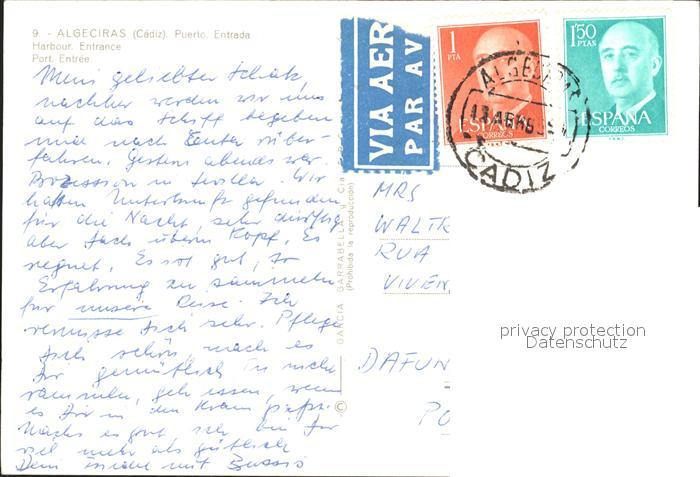 9. - ALGECIRAS (Cádiz). Puerto. Entrada
Harbour. Entrance
Port. Entrée
Mein geliebter Schatz
nachher werden wir uns
auf das Schiff begeben
und nach Ceuta rüber-
fahren. Gestern abends war
Prozession in Sevilla. Wir
hatten Unterkunft gefunden
für die Nacht, sehr dürftig
aber Dach überm Kopf. Es
regnet. Es ist gut, so
Erfahrung zu sammeln
für unsere Reise. Ich
vermisse Dich sehr. Pflege
Dich schön, mach es
Dir gemütlich
essen, wenn
es Dir in den Kram paßt.
Machs es gut ich bin Dir
viel mehr als
Dein mit Bussis
VIA AEREA
PAR AV
1
PTA
ESPAÑA
CORREOS
1'50
PTAS
ESPAÑA
CORREOS
ALGECIRAS
CADIZ
GARCIA GARRABELLA Y Cia
(Prohibida la reproducción)
©
MRS
WALTR
RUA
VIVEN
DAFUN
PO
privacy protection
Datenschutz